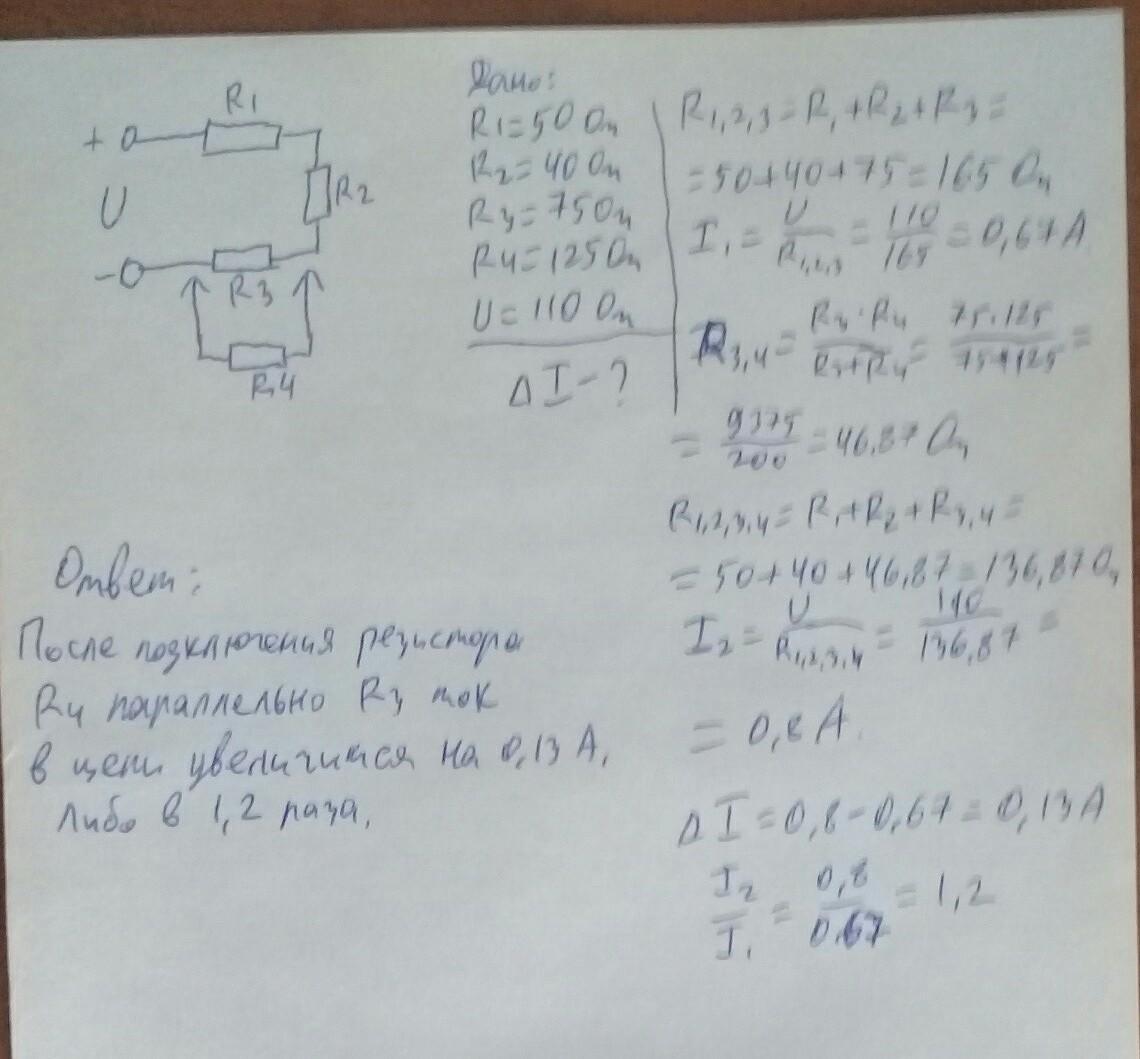 R1
+
U
R2
-
R3
R4
Дано:
R1=50 Ом
R2=40 Ом
R3=75 Ом
R4=125 Ом
U=110 Ом
ΔI-?
R1,2,3=R1+R2+R3=
=50+40+75=165 Ом
I1=U/R1,2,3=110/165=0,67A
R3,4=R3·R4/R3+R4=75·125/75+125=
=9375/200=46,87 Ом
R1,2,3,4=R1+R2+R3,4=
=50+40+46,87=136,87 Ом
I2=U/R1,2,3,4=110/136,87=
=0,8A.
ΔI=0,8-0,67=0,13A
I2/I1=0,8/0.67=1,2
Ответ:
После подключения резистора
R4 параллельно R3 ток
в цепи увеличится на 0,13 A,
либо в 1,2 раза,